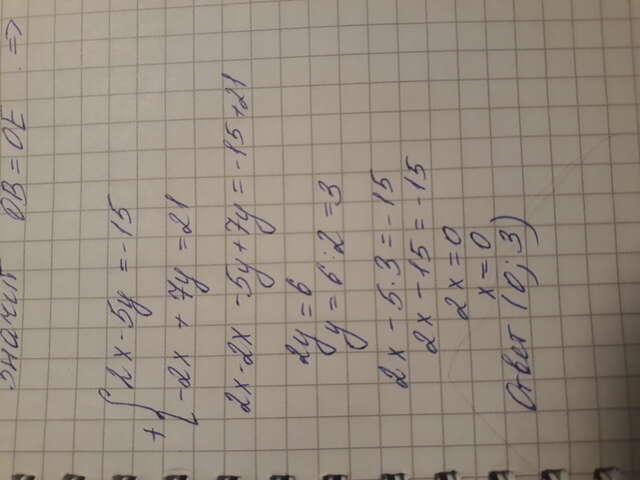 значит OB = OE =>
+ { 2x - 5y = -15
-2x + 7y = 21
2x - 2x - 5y + 7y = -15 + 21
2y = 6
y = 6 : 2 = 3
2x - 5 · 3 = -15
2x - 15 = -15
2x = 0
x = 0
Ответ (0; 3)